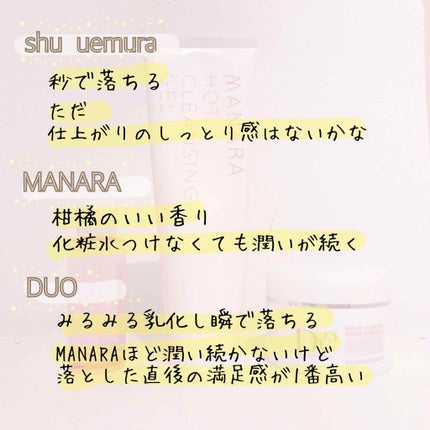 shu uemura
秒で落ちる
ただ
仕上がりのしっとり感はないかな
MANARA
柑橘のいい香り
化粧水つけなくても潤いが続く
DUO
みるみる乳化し瞬で落ちる
MANARAほど潤い続かないけど
落とした直後の満足感が1番高い
MANARA
HOT
CLEANSING
GEL